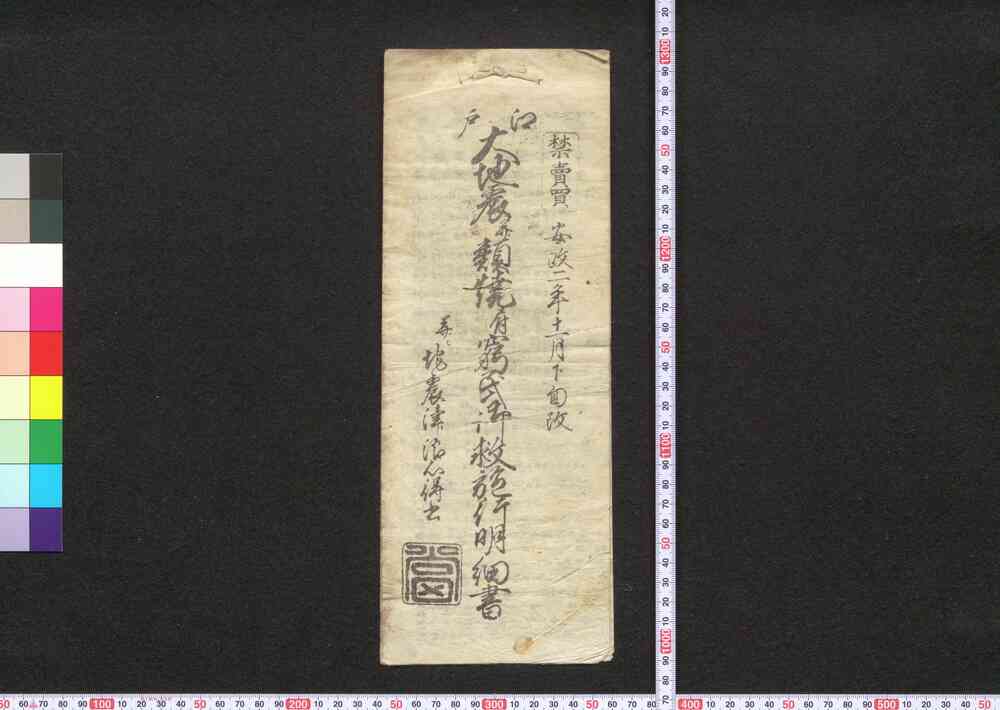 禁賣買 安政二年十一月下旬改
江戸
大地震并類焼ニ付窮民御救施行明細書
并ニ地震津浪心得書